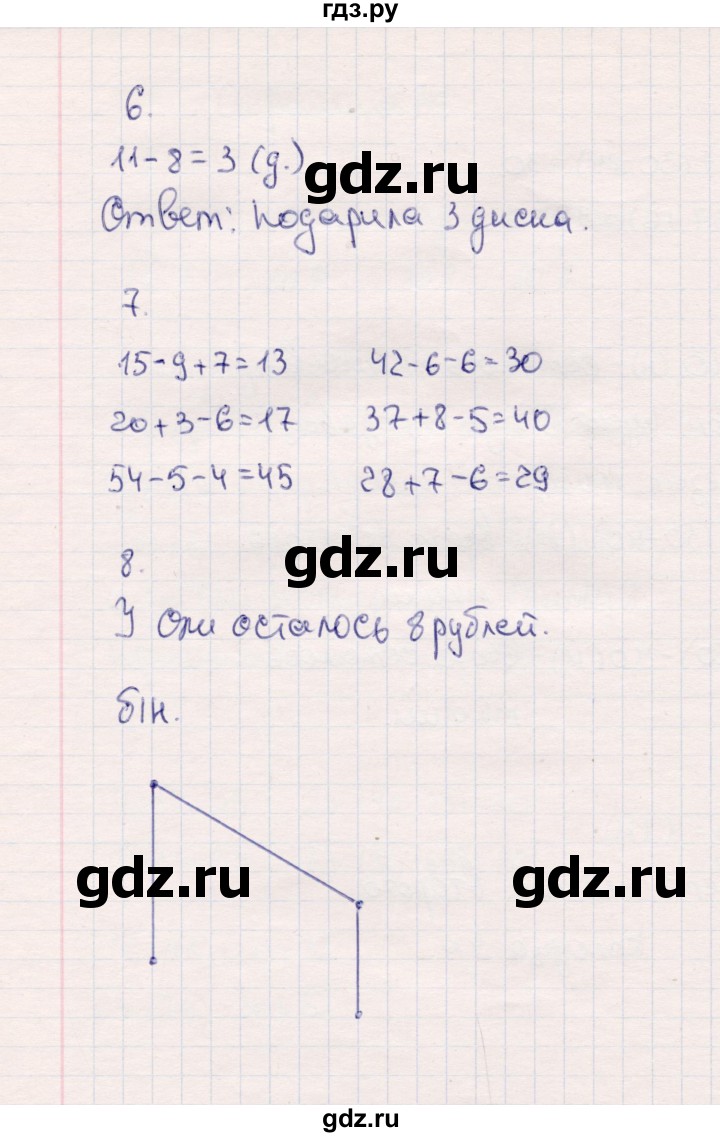 гдз.ру
6.
11-8=3 (д.)
gdz.ru
Ответ: подарила 3 диска.
7.
15-9+7=13 42-6-6=30
20+3-6=17 37+8-5=40
54-5-4=45 28+7-6=29
gdz.ru
8.
У Оли осталось 8 рублей.
б|н.
gdz.ru gdz.ru
gdz.ru